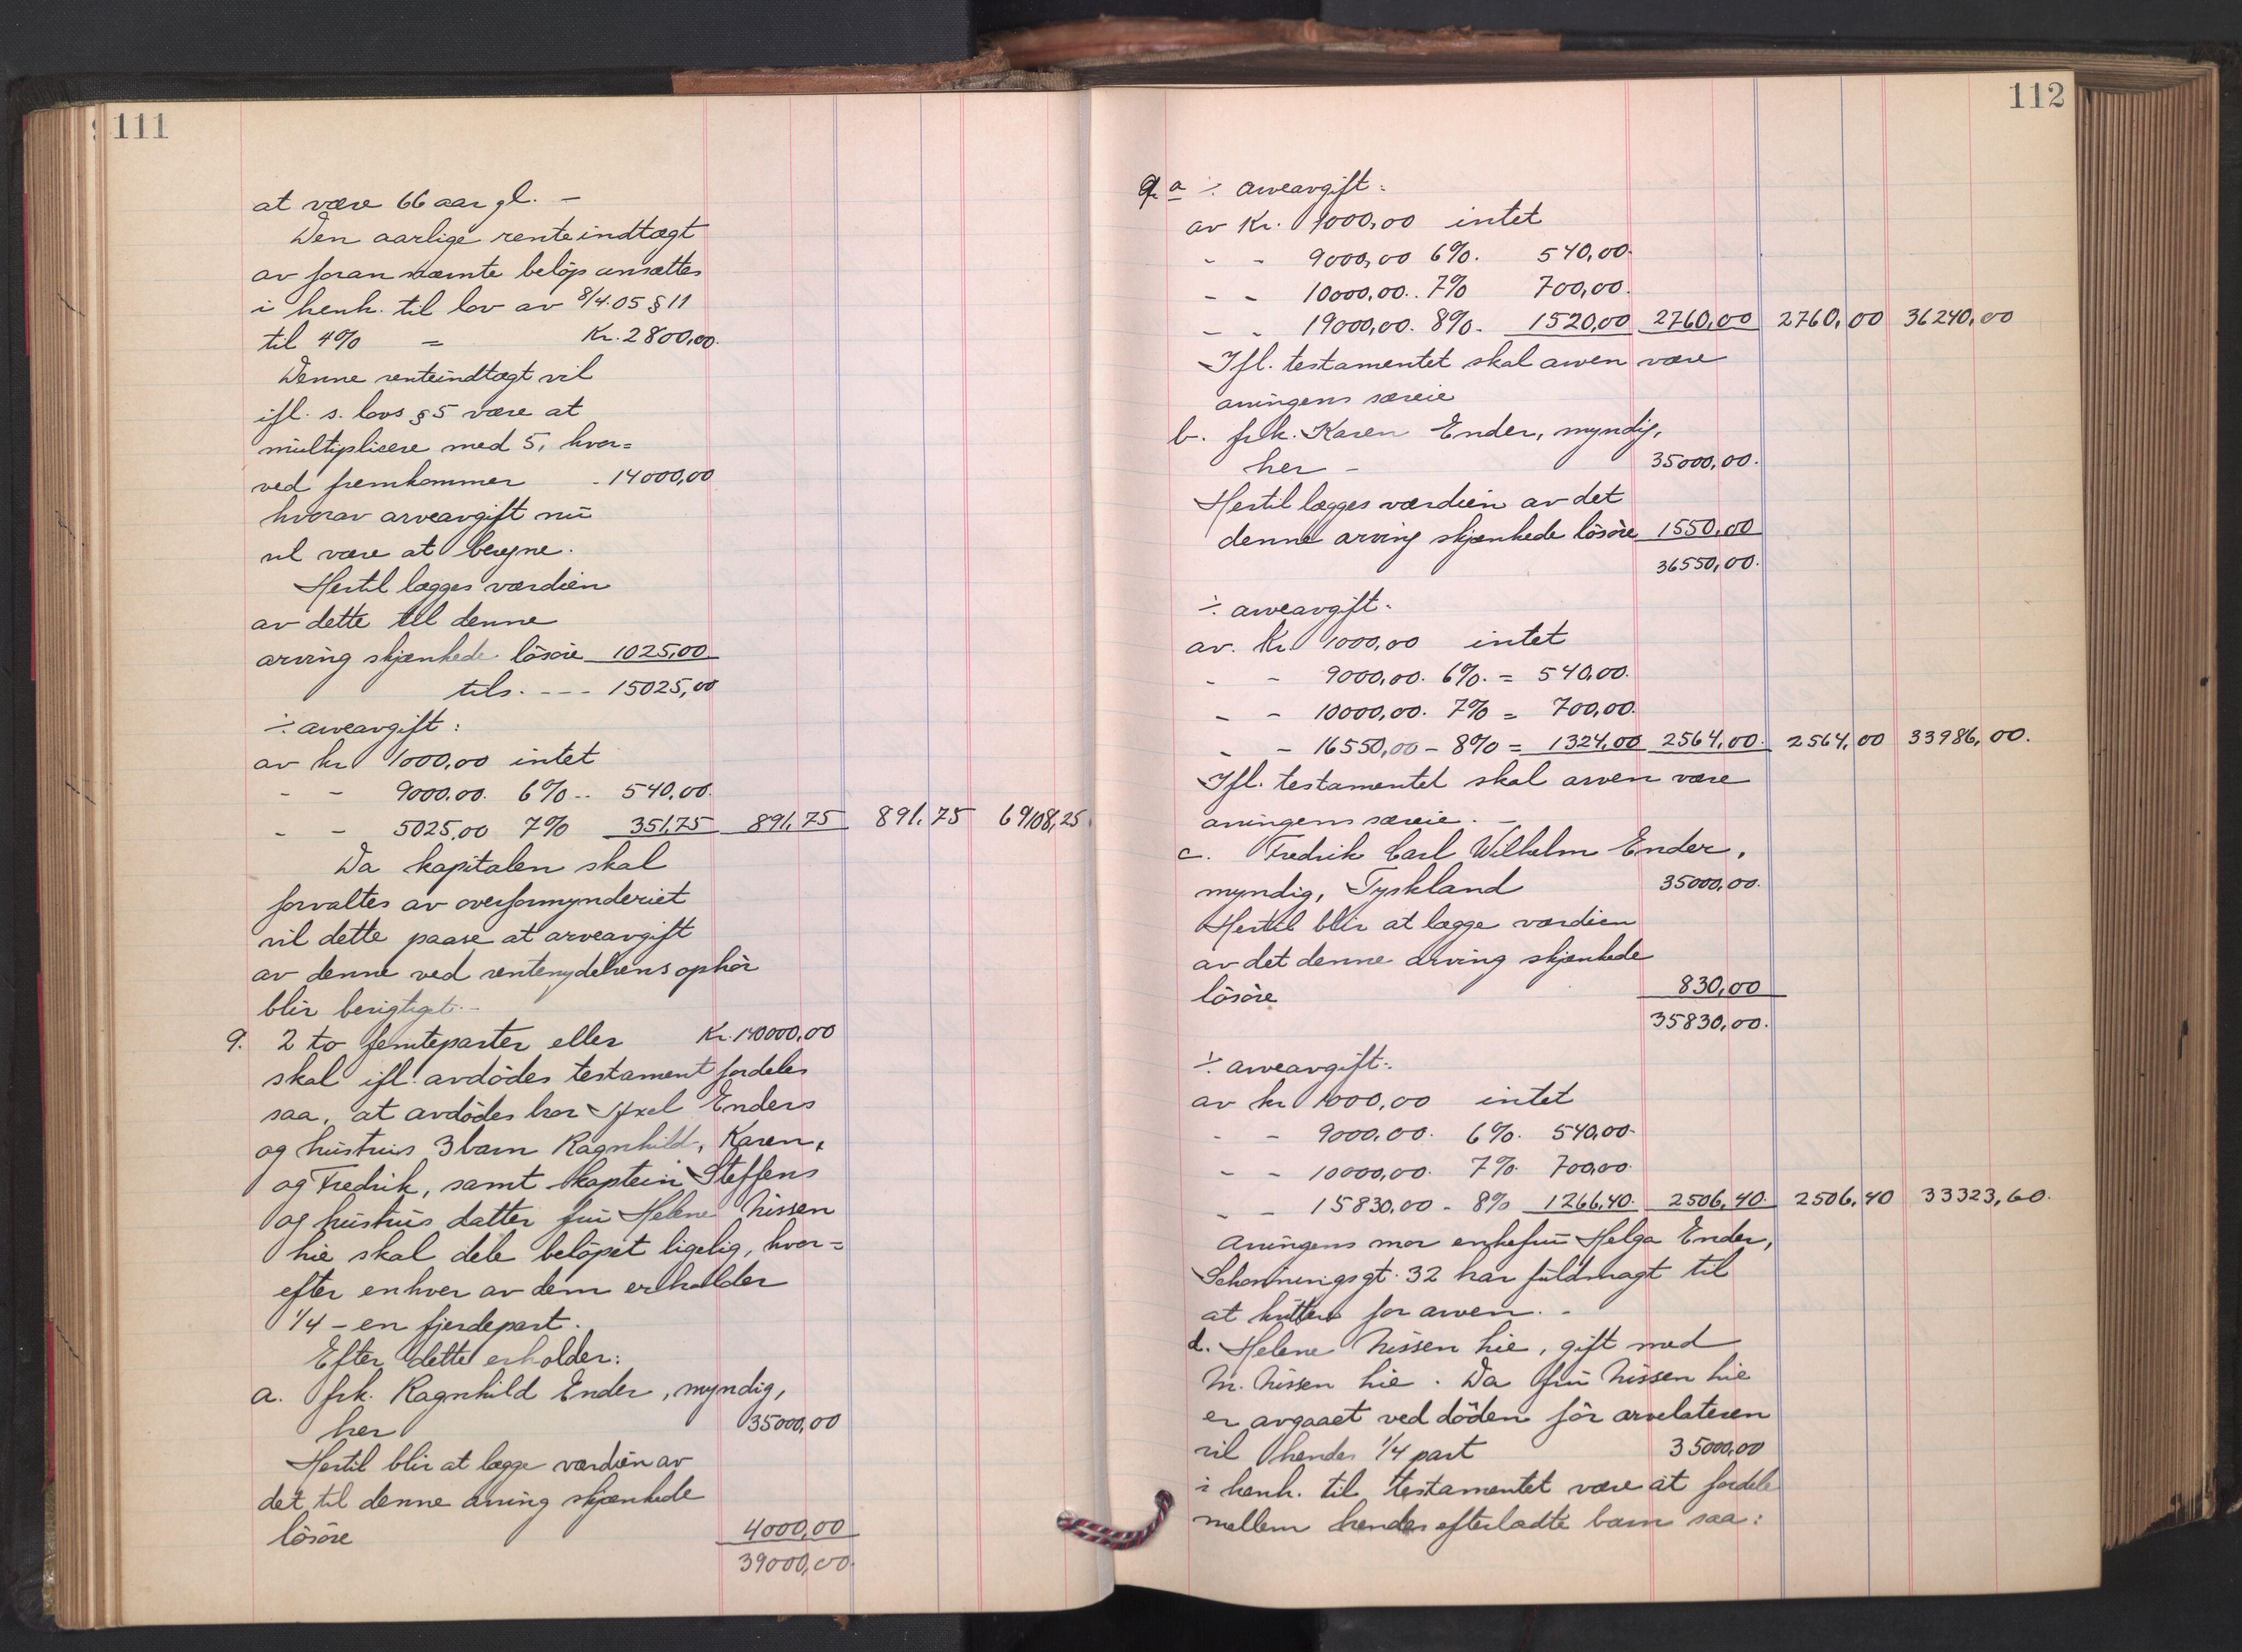 111
at være 66 aar gl. –
Den aarlige renteindtægt
av foran nævnte beløp ansættes
i henh. til lov av 8/4.05 § 11
til 4% = Kr. 2800,00.
Denne renteindtægt vil
ifl. s. lovs § 5 være at
multiplicere med 5, hvor=
ved fremkommer - 14000,00
hvorav arveavgift nu
vil være at beregne.
Hertil lægges værdien
av dette til denne
arving skjænkede løsøre 1025,00
tils. - - - 15025,00
÷ arveavgift:
av kr 1000,00 intet
- - 9000.00. 6% - - 540,00.
- - 5025,00 7% 351,75 891,75 891,75 69108,25.
Da kapitalen skal
forvaltes av overformynderiet
vil dette paase at arveavgift
av denne ved rentenydelsens ophør
blir berigtiget. –
9. 2 to femteparter eller Kr. 140000,00
skal ifl. avdødes testament fordeles
saa, at avdødes bror Axel Enders
og hustrus 3 barn Ragnhild, Karen,
og Fredrik, samt kaptein Steffens
og hustrus datter fru Helene Nissen
hie skal dele beløpet ligelig, hvor=
efter enhver av dem erholder
1/4 – en fjerdepart.
Efter dette erholder:
a. frk. Ragnhild Ender, myndig,
her 35000,00
Hertil blir at lægge værdien av
det til denne arving skjænkede
løsøre 4000,00
39000,00.
112
9. a ÷ arveavgift:
av Kr. 1000,00 intet
- - 9000,00 6%. 540,00.
- - 10000,00.. 7% 700,00.
- - 19000,00. 8%. 1520,00 2760,00 2760,00 36240,00
Ifl. testamentet skal arven være
arvingens særeie
b. frk. Karen Ender, myndig,
her – 35000,00.
Hertil lægges værdien av det
denne arving skjænkede løsøre 1550,00
36550,00.
÷ arveavgift:
av. Kr. 1000,00 intet
- - 9000,00. 6%. = 540,00.
- - 10000,00. 7% = 700,00.
- - 16550,00 – 8% = 1324,00 2564,00. 2564,00 33986,00.
Ifl. testamentet skal arven være
arvingens særeie. –
c. Fredrik Carl Wilhelm Ender,
myndig, Tyskland 35000,00.
Hertil blir at lægge værdien
av det denne arving skjænkede
løsøre 830,00
35830,00.
÷ arveavgift:
av kr 1000,00 intet
- - 9000,00. 6%. 540,00.
- - 10000,00. 7%. 700,00.
- - 15830,00 - 8% 1266,40. 2506,40. 2506,40 33323,60.
Arvingens mor enkefru Helga Ender,
Schønningsgt. 32 har fuldmagt til
at kvittere for arven. –
d. Helene Nissen hie, gift med
M. Nissen hie. Da fru Nissen hie
er avgaaet ved døden før arvelateren
vil hendes 1/4 part 35000,00
i henh. til testamentet være at fordele
mellem hendes efterladte barn saa: